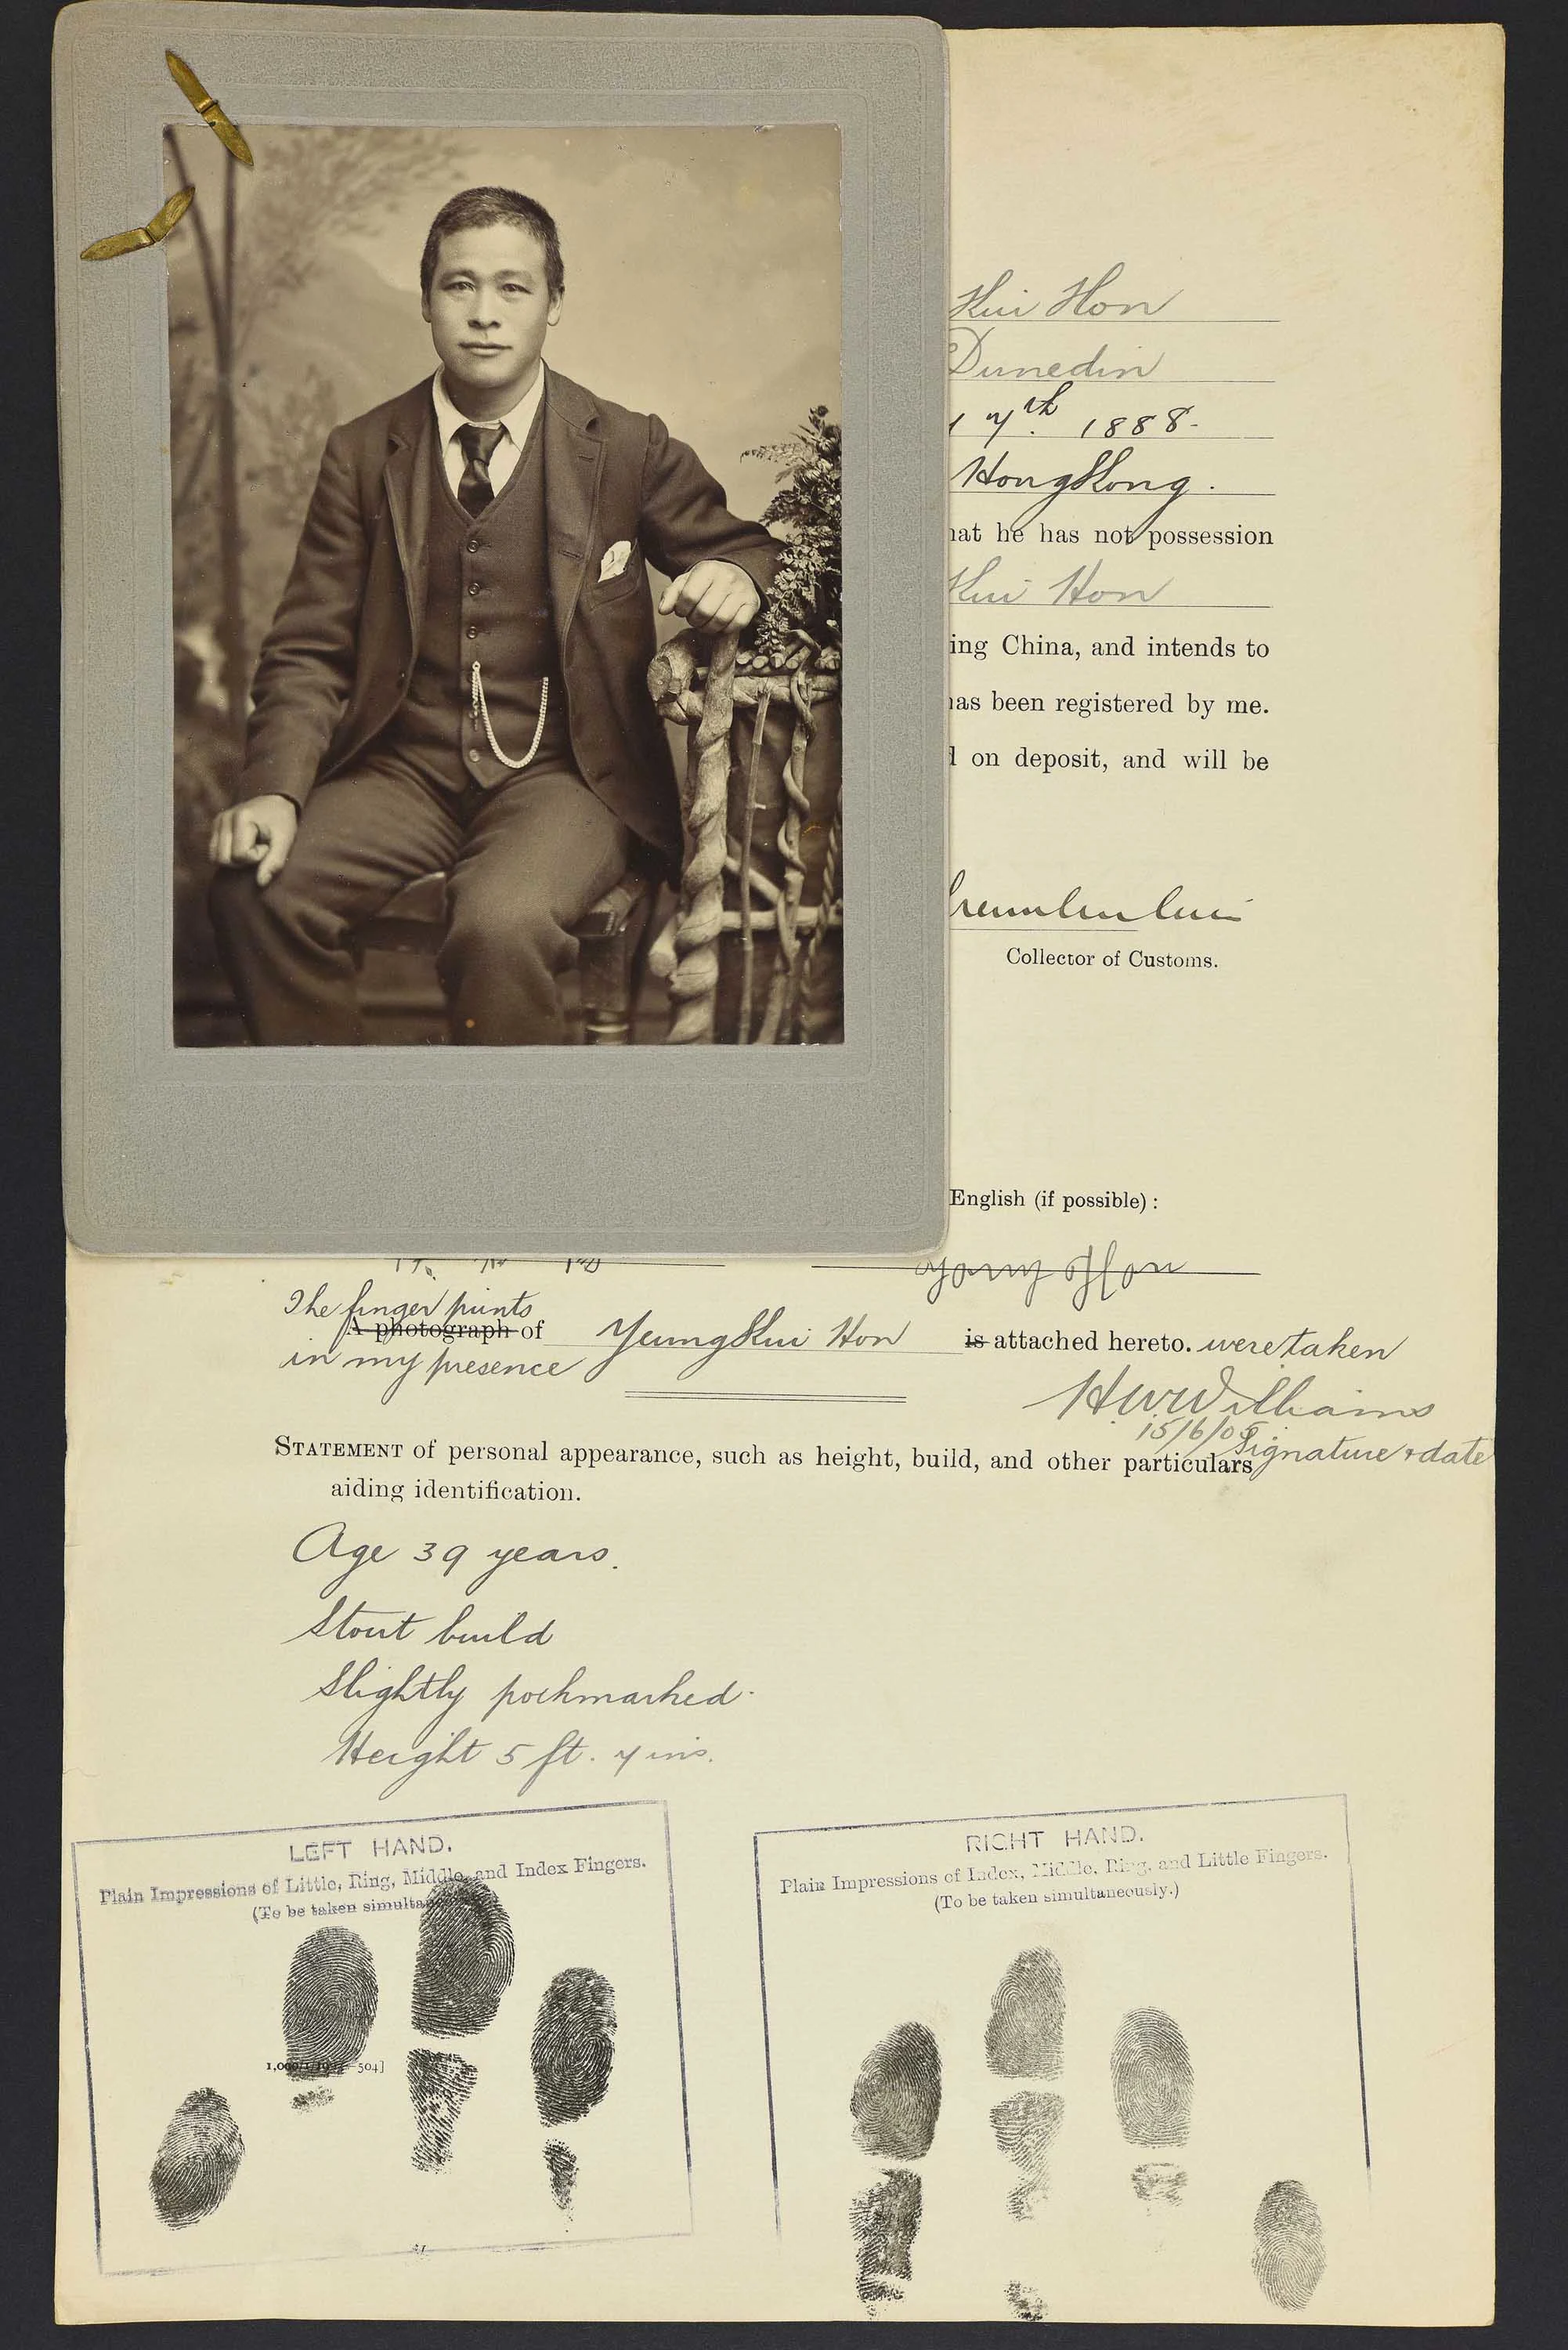 Kui Hon
Dunedin
7th. 1888-
HongKong.
he has not possession
Kui Hon
China, and intends to
been registered by me.
on deposit, and will be
Collector of Customs.
English (if possible):
yong Hon
The finger prints
A photograph of Yeung Kui Hon is attached hereto. were taken
in my presence
H W Williams
15/6/05
Signature & date
STATEMENT of personal appearance, such as height, build, and other particulars
aiding identification.
Age 39 years.
Stout build
Slightly pockmarked.
Height 5 ft. 7 ins.
LEFT HAND.
Plain Impressions of Little, Ring, Middle, and Index Fingers.
(To be taken
RIGHT HAND.
Plain Impressions of Index, Middle, Ring, and Little Fingers.
(To be taken simultaneously.)
504]